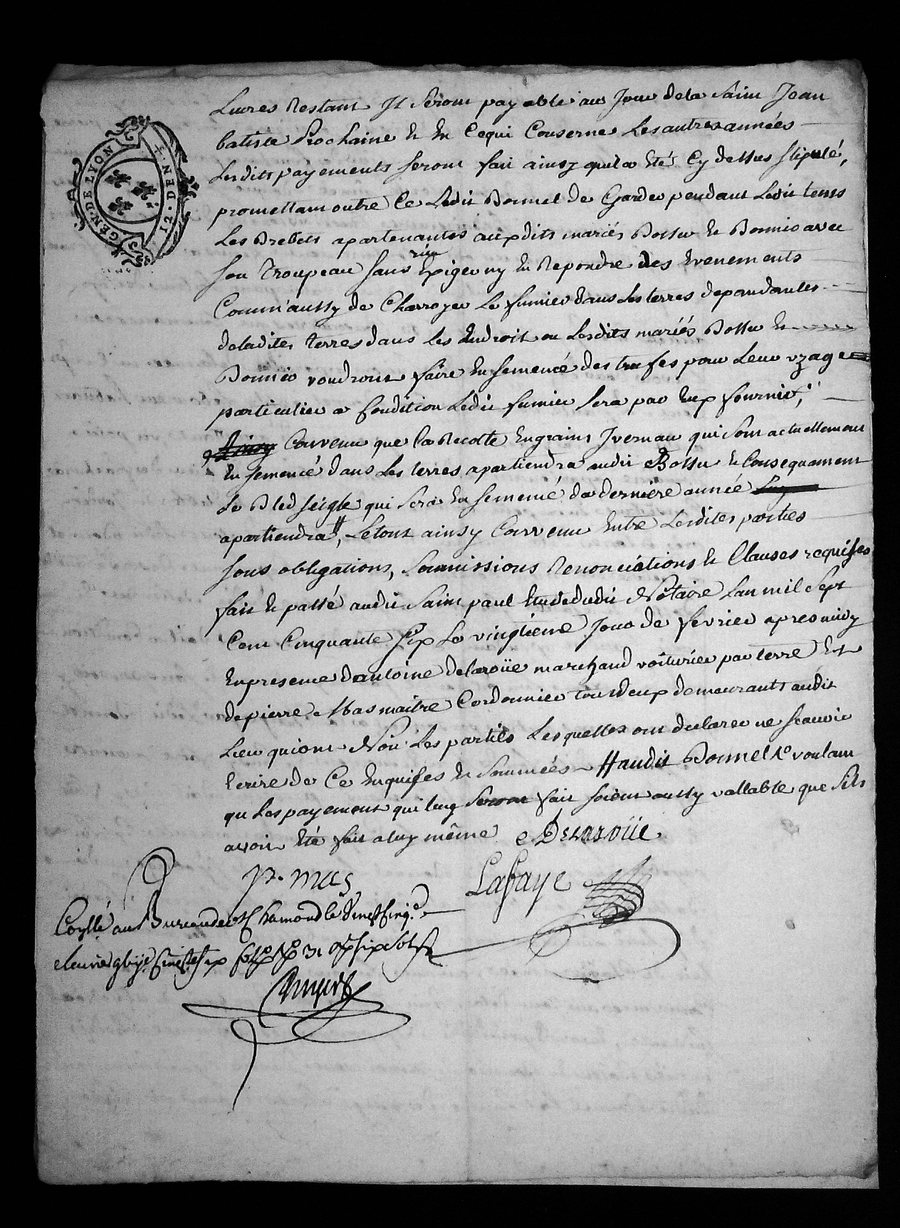 GEN. DE LYON
12. DEN. ET
Livres Restant Il seront payable au Jour de la Saint Jean
batiste Prochaine et en Cequi Conserne Les autres années
Lesdits payements seront fait ainsy quil a Etés Cy dessus stipulé,
promettant outre Ce Ledit Bonnel de Garder pendant Ledit tems
Les Brebets apartenantes auxdits mariés Bossu et Bonnio avec
son Troupeau sans rien Exiger ny en Repondre des Evenements
Comm'aussy de Charroyer Le fumier dans Les terres depandantes
deladites terres dans Les Endroit ou Lesdits mariés Bossu et
Bonnio voudront faire Ensemencé des trufes pour Leur uzage
particulier a Condition Ledit fumier sera par Eux fournir,
Convenu que la Recolte Engrains Ivernau qui sont actuellement
Ensemencé dans Les terres apartiendra audit Bossu et Consequament
Le Bled seigle qui sera Ensemencé la derniere année
apartiendra, Letout ainsy Convenu Entre Lesdites parties
sous obligations, Soumissions Renonciations et Clauses requises
fait et passé audit Saint paul Etude dudit Notaire Lan mil sept
Cent Cinquante six Le vingtieme Jour de fevrier apres midy
En presence d'antoine delaroüe marchand voiturier par terre Et
de pierre Mas maitre Cordonnier tou deux demeurants audit
Lieu qui ont Non Les parties Lesquelles ont declaree ne scavoir
Ecrire de Ce Enquises et Sommées audit Bonnel voulant
qu Les payement qui luy seront fait soient aussy vallable que Sils
avoir Eté fait a luy même Delaroüe
P. mas
Lafaye
au Bureau de St Chamond le vingt cinq